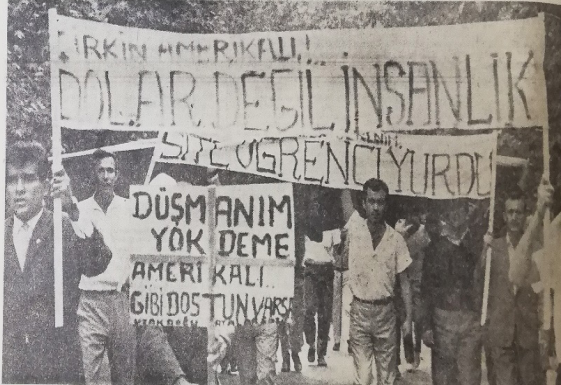 ÇİRKİN AMERİKALI..!
DOLAR DEĞİL İNSANLIK
SİTE ÖĞRENCİ YURDU
DÜŞMANIM
YOK DEME
AMERİKALI..
GİBİ DOSTUN VARSA